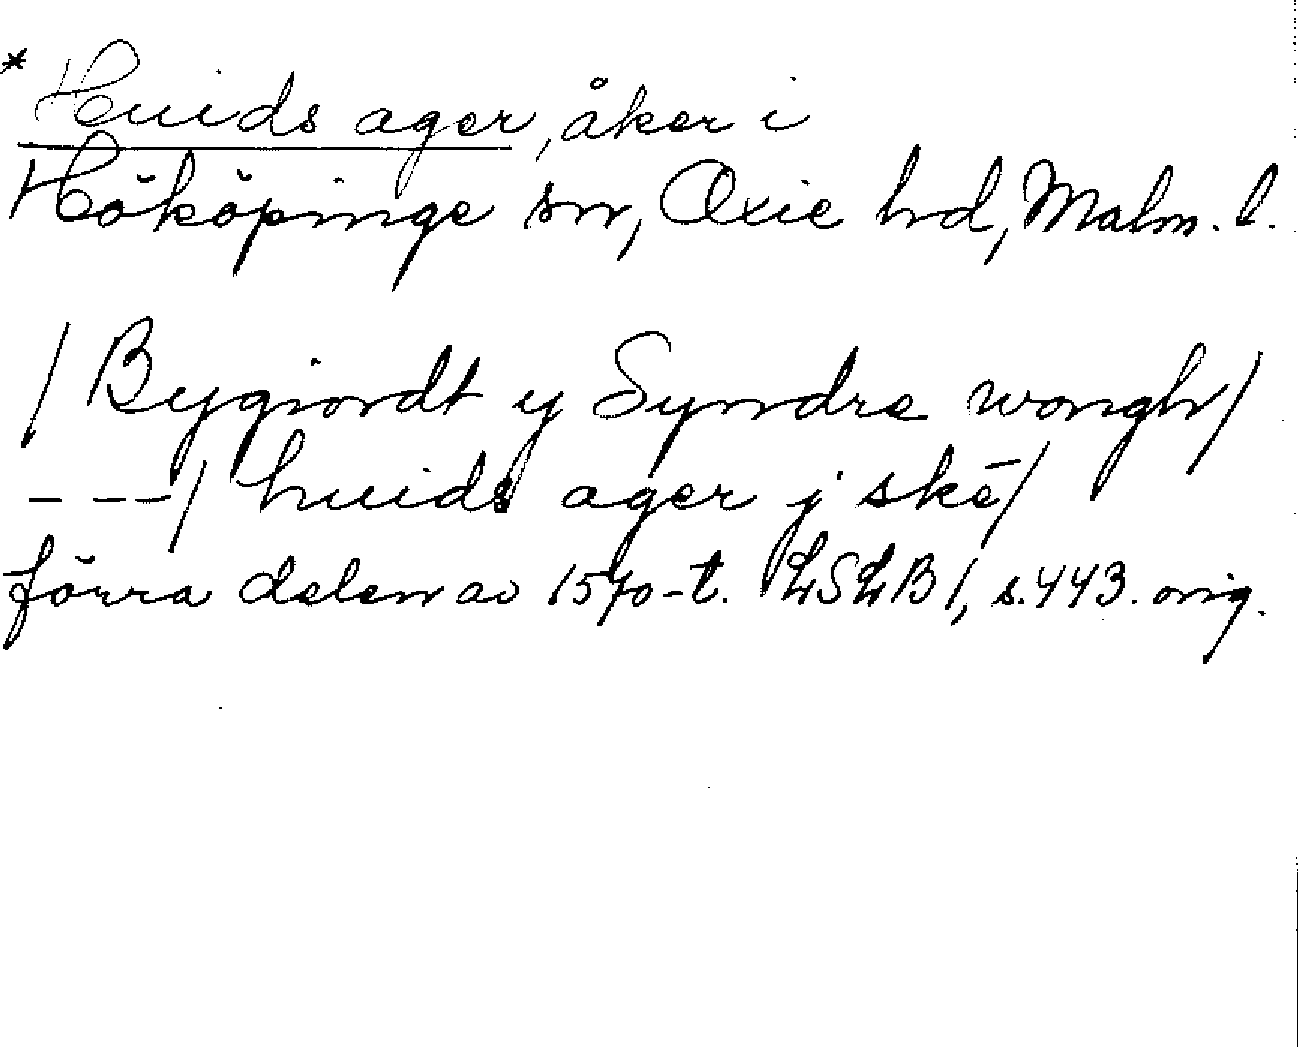 * Huids ager, åker i
Hököpinge sn, Oxie hd, Malm. l.
/ Bygiordt y Syndre wongh /
- - - / huids ager j skē /
förra delen av 1570-t. LSLB 1, s. 443. orig.